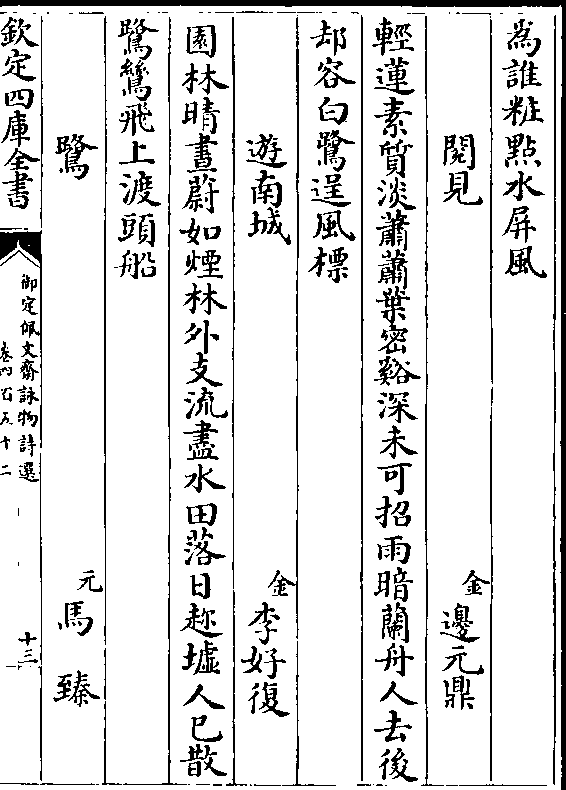 為誰粧點水屏風
閱見 金 邊元鼎
輕蓮素質淡蕭蕭葉密谿深未可招雨暗蘭舟人去後
却容白鷺逞風標
遊南城 金 李好復
園林晴晝蔚如煙林外支流盡水田落日趂墟人已散
鷺鷥飛上渡頭船
鷺 元 馬臻
欽定四庫全書 御定佩文齋詠物詩選 卷四百五十二 十三